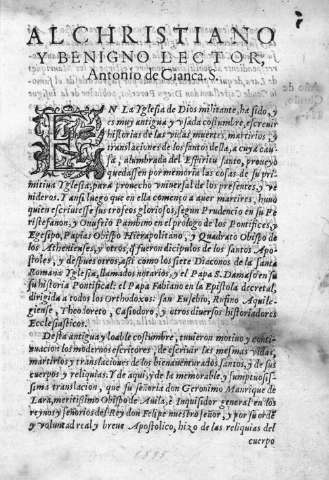 AL CHRISTIANO
Y BENIGNO LECTOR,
Antonio de Cianca. S.
EN La Yglesia de Dios militante, ha sido, y
es muy antigua y vsada costumbre, escreuir
historias de las vidas, muertes, martirios, y
translaciones de los santos della, a cuya cau
sa, alumbrada del Espiritu santo, proueyò
quedassen por memoria las cosas de su pri
mitiua Yglesia, para prouecho vniuersal de los presentes, y ve
nideros. Y ansi luego que en ella començo a auer martires, huuo
quien escriuiesse sus trofeos gloriosos, segun Prudencio en su Pe
ristefanon, y Onufrio Panuino en el prologo de los Pontifices, y
Egesipo, Papias Obispo Hierapolitano, y Quadrato Obispo de
los Athenienses, y otros, q̃ fueron dicipulos de los santos Apos
toles, y despues otros, assi como los siete Diaconos de la santa
Romana Yglesia, llamados notarios, y el Papa S. Damaso en su
su historia Pontifical: el Papa Fabiano en la Epistola decretal,
dirigida a todos los Orthodoxos: san Eusebio, Rufino Aquile-
giense, Theodoreto, Casiodoro, y otros diuersos historiadores
Ecclesiasticos.
Desta antigua y loable costumbre, tuuieron motiuo y conti-
nuacion los modernos escritores, de escriuir las mesmas vidas,
martirios y translaciones de los bienauenturados santos, y de sus
cuerpos y reliquias: Y de aqui, y de la memorable, y sumptuosis-
sima translacion, que su señoria don Geronimo Manrique de
Lara, meritissimo Obispo de Auila, è Inquisidor general en los
reynos y señorios del Rey don Felipe nuestro señor, y por su ordẽ
y voluntad real y breue Apostolico, hizo de las reliquias del
cuerpo
1595